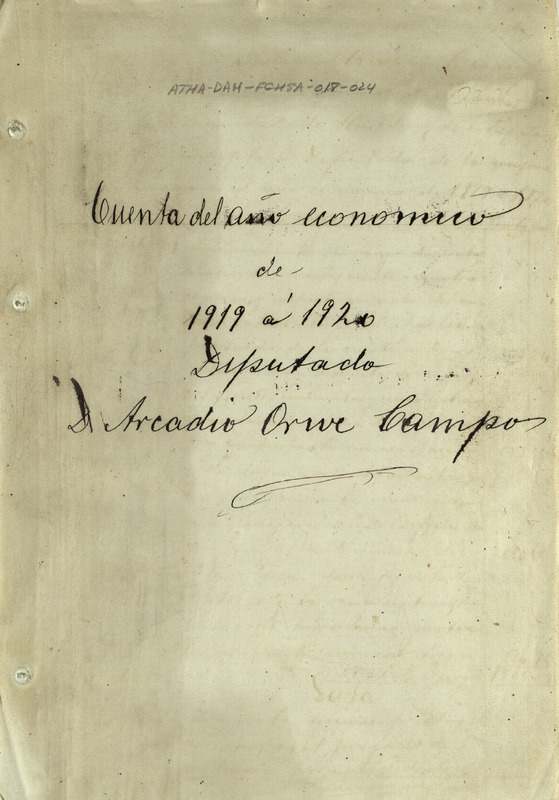 ATHA-DAH-FCHSA-018-024
Cuenta del año economico
de
1919 á 1920
Diputado
D Arcadio Orive Campo